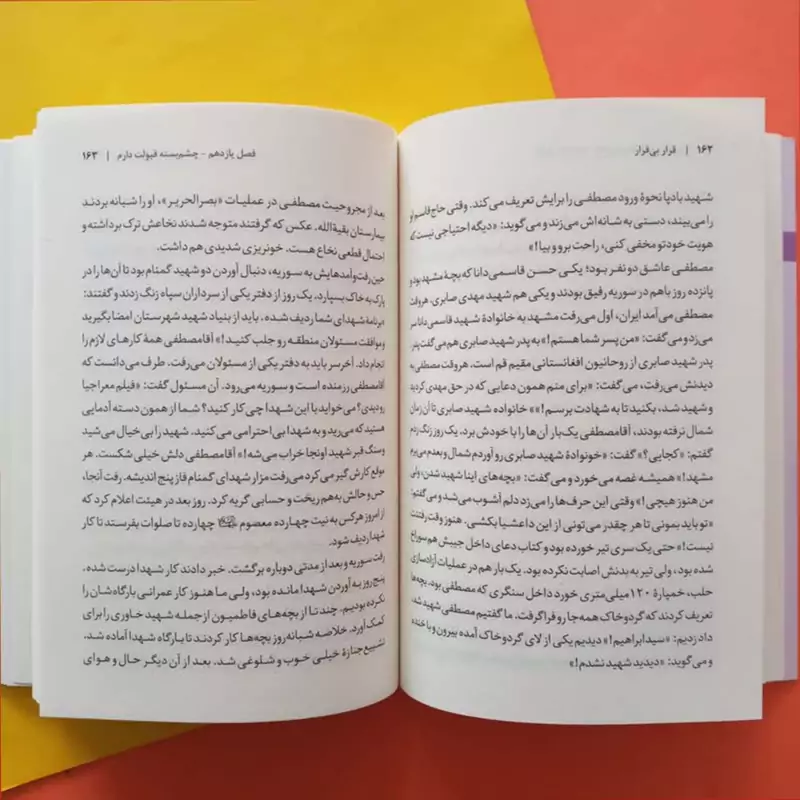 ۱۶۲ | قرار بی‌قرار
شهید بادپا نحوهٔ ورود مصطفی را برایش تعریف می‌کند. وقتی حاج قاسم او
را می‌بیند، دستی به شانه‌اش می‌زند و می‌گوید: «دیگه احتیاجی نیست که
هویت خودتو مخفی کنی، راحت برو و بیا!»
مصطفی عاشق دو نفر بود؛ یکی حسن قاسمی‌دانا که بچهٔ مشهد بود و
پانزده روز باهم در سوریه رفیق بودند و یکی هم شهید مهدی صابری. هروقت
مصطفی می‌آمد ایران، اول می‌رفت مشهد به خانوادهٔ شهید قاسمی‌دانا سر
می‌زد و می‌گفت: «من پسر شما هستم!» به پدر شهید صابری هم می‌گفت پدر.
پدر شهید صابری از روحانیون افغانستانی مقیم قم است. هروقت مصطفی به
دیدنش می‌رفت، می‌گفت: «برای منم همون دعایی که در حق مهدی کردید
و شهید شد، بکنید تا به شهادت برسم!»» خانواده شهید صابری تا آن زمان
شمال نرفته بودند، آقامصطفی یک‌بار آن‌ها را با خودش برد. یک روز زنگ زدم
گفتم: «کجایی؟» گفت: «خونوادهٔ شهید صابری رو آوردم شمال و بعدم می‌برم
مشهد!» همیشه غصه می‌خورد و می‌گفت: «بچه‌های اینا شهید شدن، ولی
من هنوز هیچی!» وقتی این حرف‌ها را می‌زد دلم آشوب می‌شد و می‌گفتم:
«تو باید بمونی تا هر چقدر می‌تونی از این داعشیا بکشی. هنوز وقت رفتنت
نیست!» حتی یک سری تیر خورده بود و کتاب دعای داخل جیبش هم سوراخ
شده بود، ولی تیر به بدنش اصابت نکرده بود. یک بار هم در عملیات آزادسازی
حلب، خمپارهٔ ۱۲۰ میلی‌متری خورد داخل سنگری که مصطفی بود. بچه‌ها
تعریف کردند که گردوخاک همه‌جا رو فرا گرفت. ما گفتیم مصطفی شهید شد،
داد زدیم: «سیدابراهیم!» دیدیم یکی از لای گردوخاک آمده بیرون و با خنده
و می‌گوید: «دیدید شهید نشدم!»
فصل یازدهم - چشم‌بسته قبولت دارم | ۱۶۳
بعد از مجروحیت مصطفی در عملیات «بصرالحریر»، او را شبانه بردند
بیمارستان بقیة‌الله. عکس که گرفتند متوجه شدند نخاعش ترک برداشته و
احتمال قطعی نخاع هست. خونریزی شدیدی هم داشت.
حین رفت‌وآمدهایش به سوریه، دنبال آوردن دو شهید گمنام بود تا آن‌ها را در
پارک به خاک بسپارد. یک روز از دفتر یکی از سرداران سپاه زنگ زدند و گفتند:
«برنامهٔ شهدای شما ردیف شده. باید از بنیاد شهید شهرستان امضا بگیرید
و موافقت مسئولان منطقه رو جلب کنید!» آقامصطفی همهٔ کارهای لازم را
انجام داد. آخرسر باید به دفتر یکی از مسئولان می‌رفت. طرف می‌دانست که
آقامصطفی رزمنده است و سوریه می‌رود. آن مسئول گفت: «فیلم معراجیا
رو دیدی؟ می‌خواید با این شهدا چی‌کار کنید؟ شما از همون دسته آدمایی
هستید که می‌رید و به شهدا بی‌احترامی می‌کنید. شهید را بی‌خیال می‌شید
و سنگ قبر شهید اونجا خراب می‌شه!» آقامصطفی دلش خیلی شکست. هر
موقع کارش گیر می‌کرد می‌رفت مزار شهدای گمنام فاز پنج اندیشه. رفت آنجا،
حس و حالش به‌هم ریخت و حسابی گریه کرد. روز بعد در هیئت اعلام کرد که
از امروز هرکس به نیت چهارده معصوم چهارده تا صلوات بفرستد تا کار
شهدا ردیف شود.
رفت سوریه و بعد از مدتی دوباره برگشت. خبر دادند کار شهدا درست شده.
پنج روز به آوردن شهدا مانده بود، ولی ما هنوز کار عمرانی بارگاه‌شان را
نکرده بودیم. چند تا از بچه‌های فاطمیون از جمله شهید خاوری را برای
کمک آورد. خلاصه شبانه‌روز بچه‌ها کار کردند تا بارگاه شهدا آماده شد.
تشییع جنازهٔ خیلی خوب و شلوغی شد. بعد از آن دیگر حال و هوای